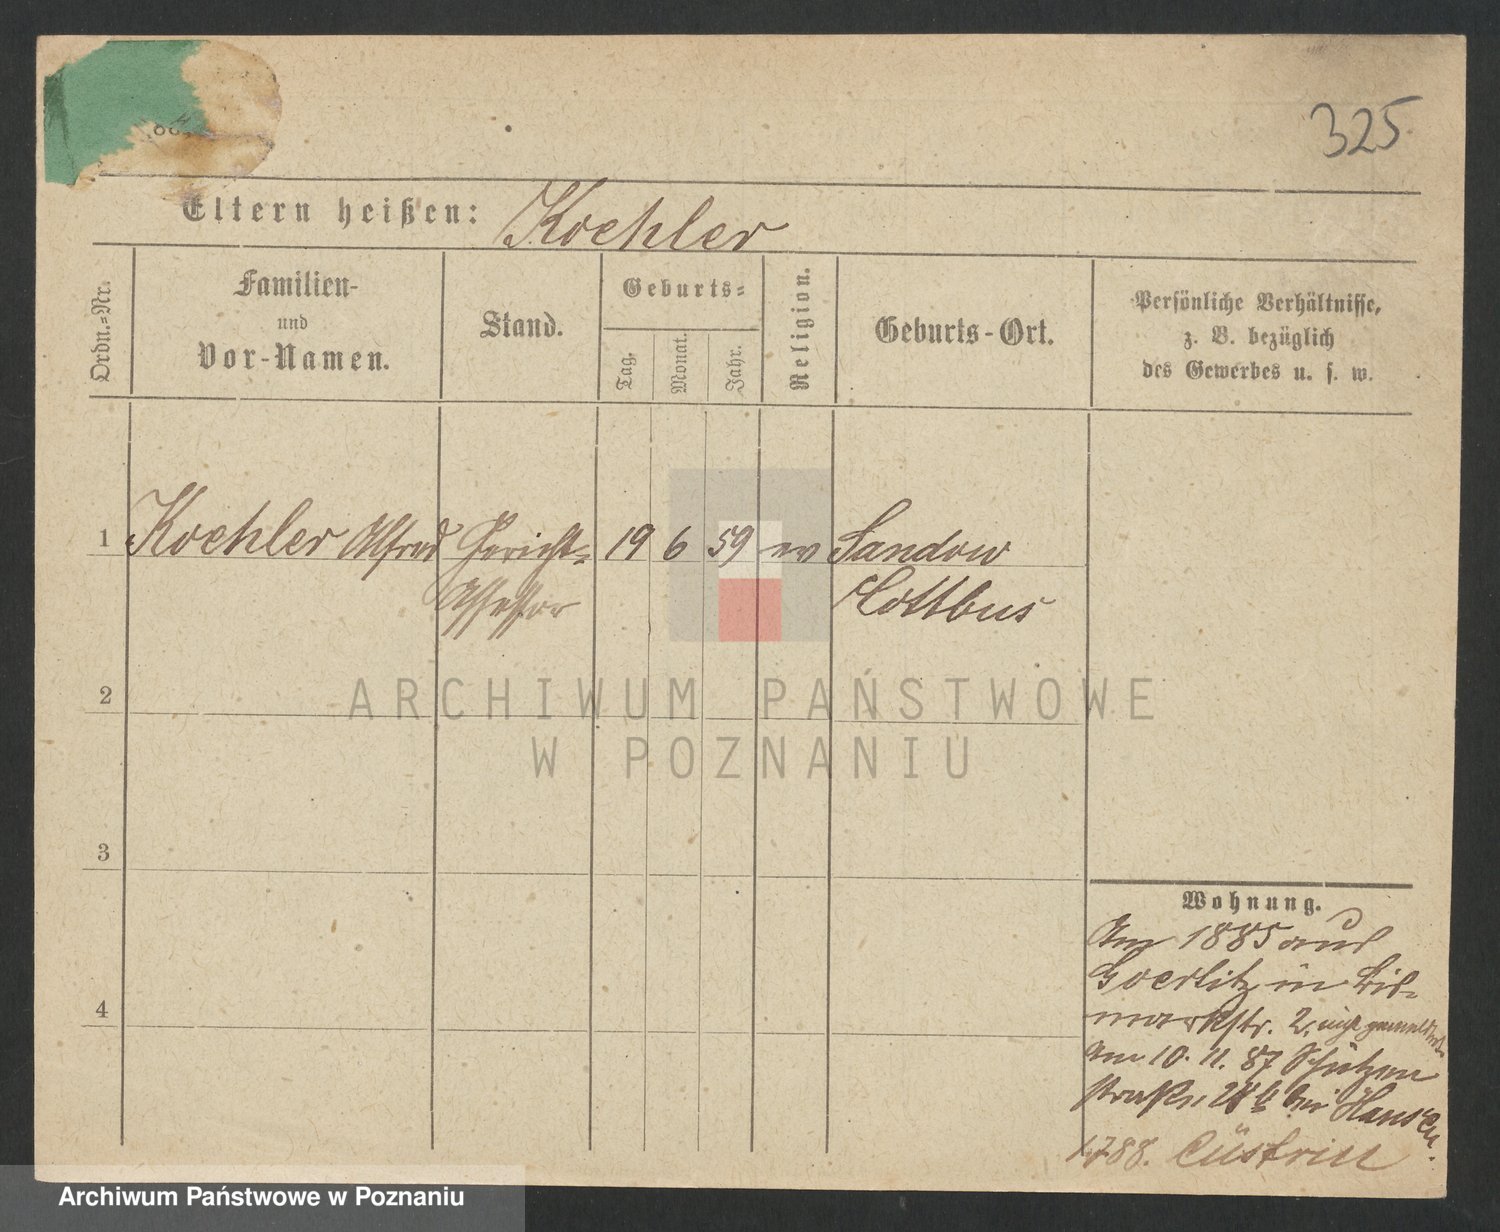 325
Eltern heißen: Koehler
Ordn.-Nr.
Familien-
und
Vor-Namen.
Stand.
Geburts-
Tag.
Monat.
Jahr.
Religion.
Geburts-Ort.
Persönliche Verhältnisse,
z. B. bezüglich
des Gewerbes u. s. w.
1 Koehler Alfred Gericht- 19 6 59 ev Sandow
Assessor Cottbus
2
3
4
Wohnung.
Am 1885 aus
Goerlitz in Bis-
markstr. 2,
am 10. 11. 87 Schützen
straße bei Hansen.
1.7.88. Cüstrin
ARCHIWUM PAŃSTWOWE
W POZNANIU
Archiwum Państwowe w Poznaniu